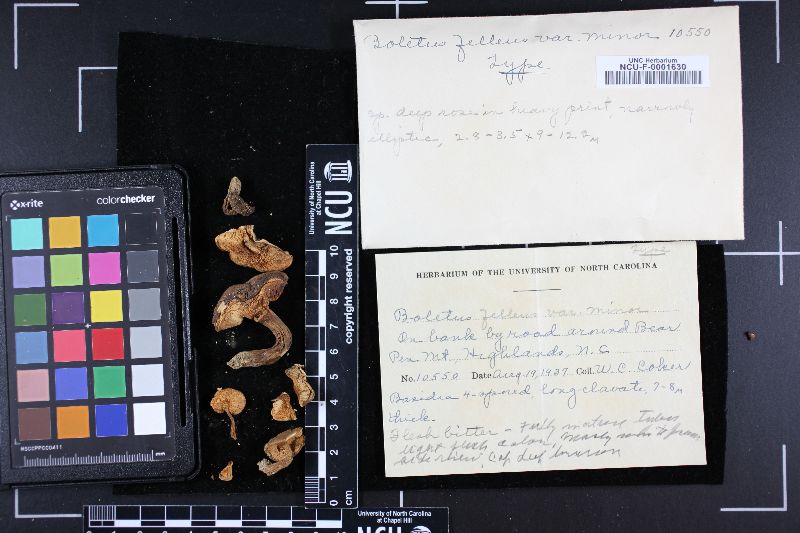 Boletus felleus var. minor 10550
Type.
UNC Herbarium
NCU-F-0001630
sp. deep rose in heavy print, narrowly
elliptic, 2.8-3.5 x 9-12.2µ
x-rite colorchecker
MSCCPPCC0411
mm
University of North Carolina
at Chapel Hill
NCU
copyright reserved
0 1 2 3 4 5 6 7 8 9 10
cm
Type
HERBARIUM OF THE UNIVERSITY OF NORTH CAROLINA
Boletus felleus var. minor
On bank by road around Bear
Pen Mt., Highlands, N. C.
No. 10550 Date Aug. 19, 1937 Coll. W. C. Coker
Basidia 4-spored, long clavate, 7-8µ
thick.
Flesh bitter - Fully mature tubes
light flesh color, nearly
side view, Cap deep brown
University of North Carolina
at Chapel Hill